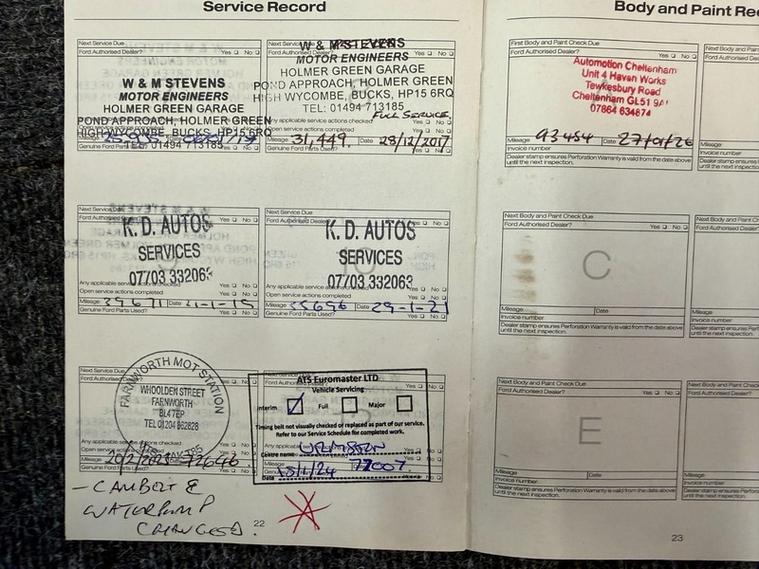 Service Record
Next Service Due
Ford Authorised Dealer? Yes No
W & M STEVENS
MOTOR ENGINEERS
HOLMER GREEN GARAGE
POND APPROACH, HOLMER GREEN
HIGH WYCOMBE, BUCKS, HP15 6RQ
TEL: 01494 713185
Genuine Ford Parts Used? Yes No
W & M STEVENS
MOTOR ENGINEERS
HOLMER GREEN GARAGE
POND APPROACH, HOLMER GREEN
HIGH WYCOMBE, BUCKS, HP15 6RQ
TEL: 01494 713185
FULL SERVICE
Any applicable service actions checked Yes No
Open service actions completed Yes No
Mileage 31,449 Date 28/12/2017
Genuine Ford Parts Used? Yes No
Next Service Due
Ford Authorised Dealer? Yes No
K. D. AUTOS
SERVICES
07703 332063
Any applicable service actions checked Yes No
Open service actions completed Yes No
Mileage Date
Genuine Ford Parts Used? Yes No
Next Service Due
Ford Authorised Dealer? Yes No
K. D. AUTOS
SERVICES
07703 332063
Any applicable service actions checked Yes No
Open service actions completed Yes No
Mileage Date 29-1-21
Genuine Ford Parts Used? Yes No
Next Service Due
Ford Authorised Dealer? Yes No
FARNWORTH MOT STATION
WHOOLDEN STREET
FARNWORTH
BL4 7EP
TEL 01204 862828
72646
- CAMBELT &
WATERPUMP
CHANGED.
ATS Euromaster LTD
Vehicle Servicing
Interim Full Major
Timing belt not visually checked or replaced as part of our service.
Refer to our Service Schedule for completed work.
Centre name: URMSTON
77007
Date
22
Body and Paint Re
First Body and Paint Check Due
Ford Authorised Dealer? Yes No
Automotion Cheltenham
Unit 4 Haven Works
Tewkesbury Road
Cheltenham GL51 9
07864 634874
Mileage 93454 Date 27/01/26
Invoice number
Dealer stamp ensures Perforation Warranty is valid from the date above
until the next inspection.
Next Body and Paint Check Due
Ford Authorised Dealer? Yes No
C
Mileage Date
Invoice number
Dealer stamp ensures Perforation Warranty is valid from the date above
until the next inspection.
Next Body and Paint Check Due
Ford Authorised Dealer? Yes No
E
Mileage Date
Invoice number
Dealer stamp ensures Perforation Warranty is valid from the date above
until the next inspection.
23